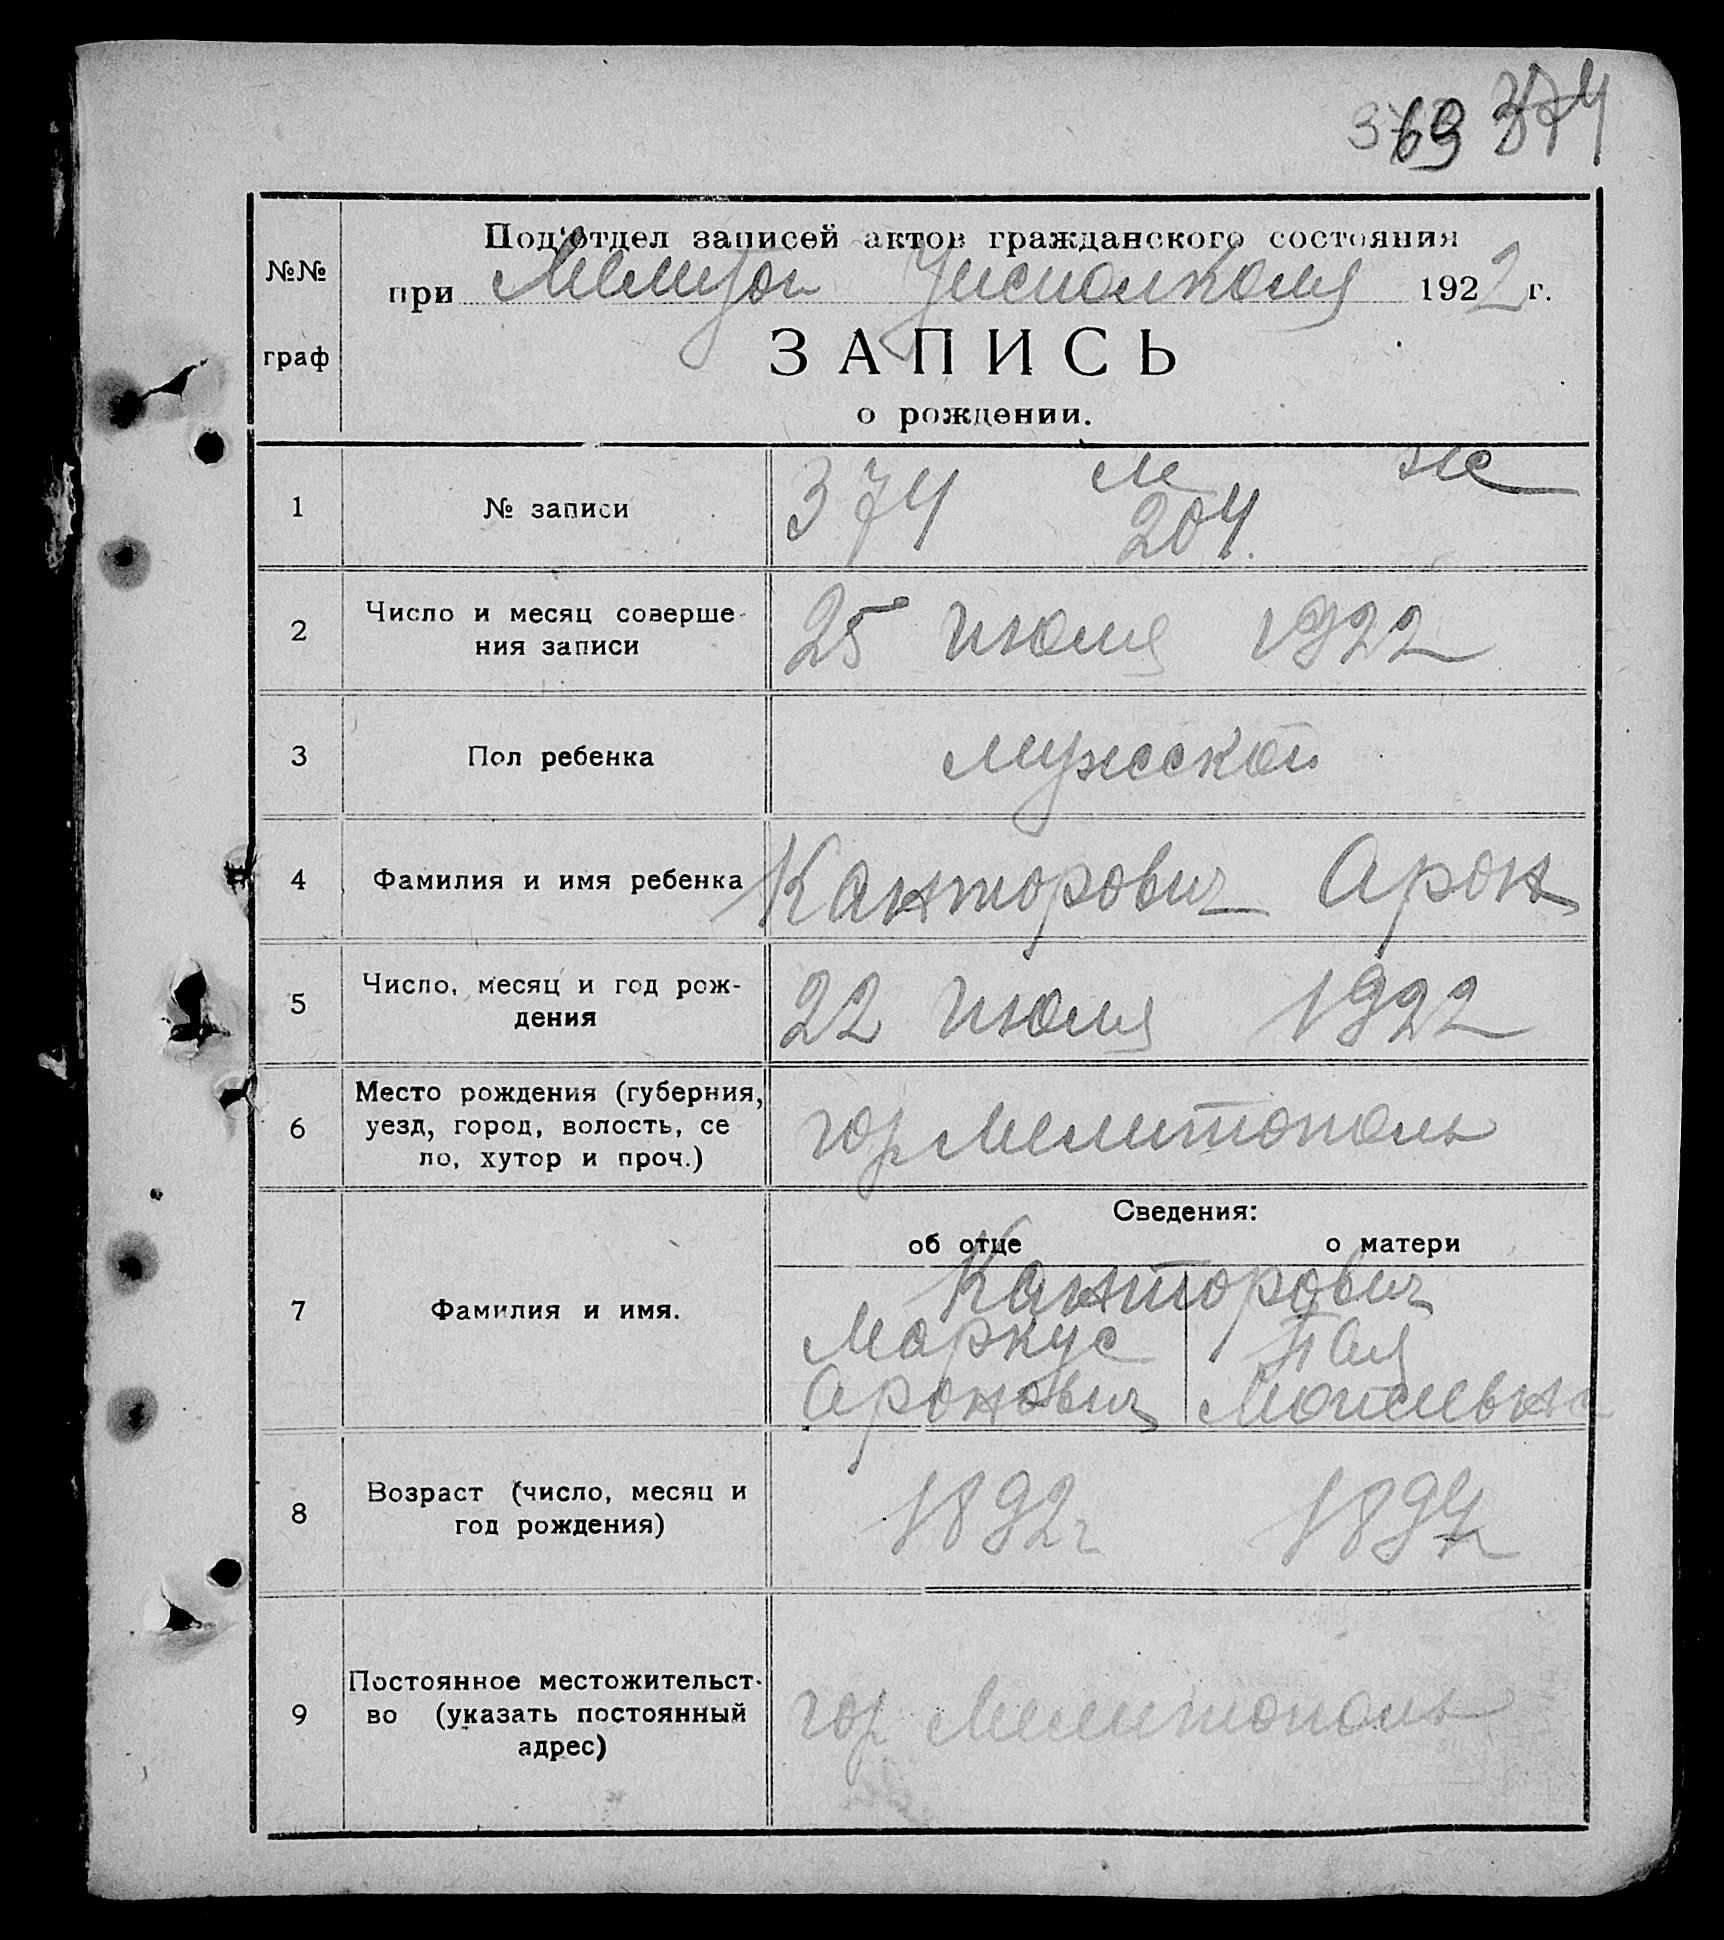 69 374
№№
граф
Под'отдел записей актов гражданского состояния
при Мелитоп Уисполкома 1922 г.
ЗАПИСЬ
о рождении.
1 № записи 374 м 204. ж
2 Число и месяц соверше-
ния записи 25 июля 1922
3 Пол ребенка мужской
4 Фамилия и имя ребенка Канторович Арон
5 Число, месяц и год рож-
дения 22 июля 1922
6 Место рождения (губерния,
уезд, город, волость, се
ло, хутор и проч.) гор Мелитополь
Сведения:
об отце о матери
7 Фамилия и имя. Канторович
Маркус
Аронович Моисеевна
8 Возраст (число, месяц и
год рождения) 1892г 1894
9 Постоянное местожительст-
во (указать постоянный
адрес) гор Мелитополь